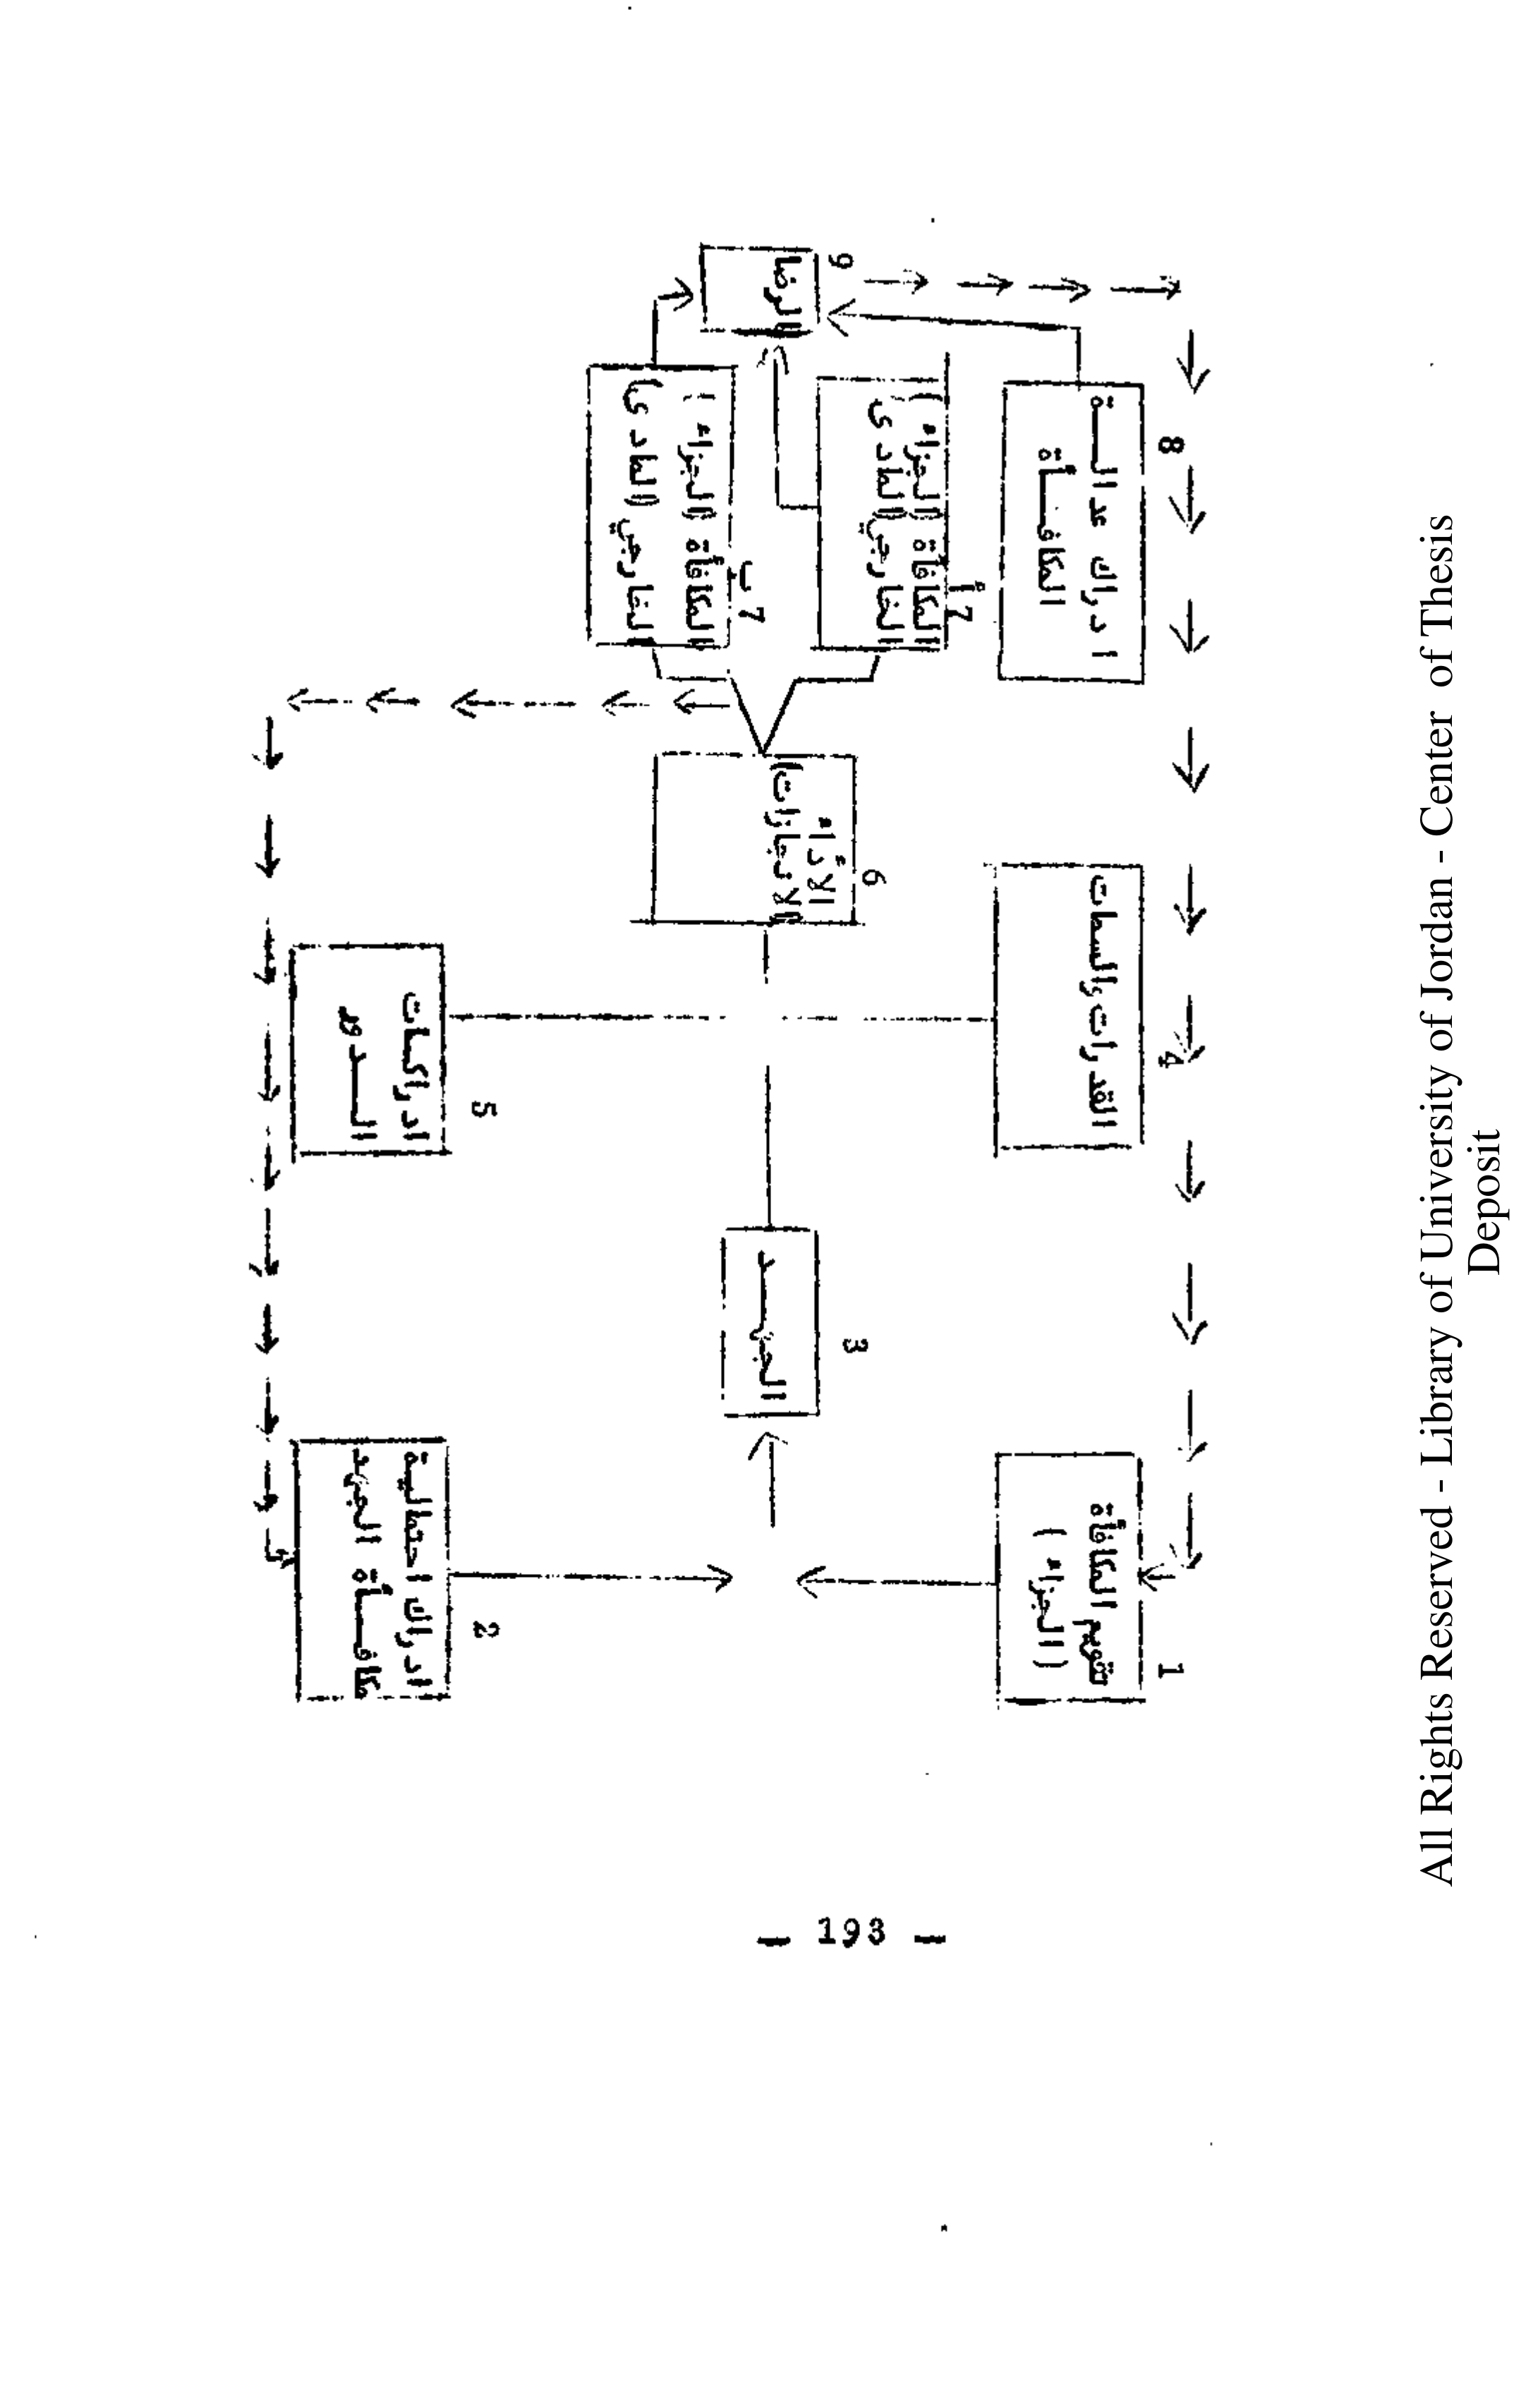 1
تقويم المكافأة
( الجزاء )
2
ادراك احتمالية
مكافــــأة الجهد
3
الجهــــد
4
القدرات والسمات
5
ادراكات
الــــدور
6
الأداء
(الانجازات)
أ 7
المكافأة (الجزاء )
الخارجي (المادى
7 ب
المكافأة (الجزاء )
الخارجي (المادى)
8
ادراك عدالــــة
المكافــــأة
9
الرضا
— 193 —
All Rights Reserved - Library of University of Jordan - Center of Thesis
Deposit